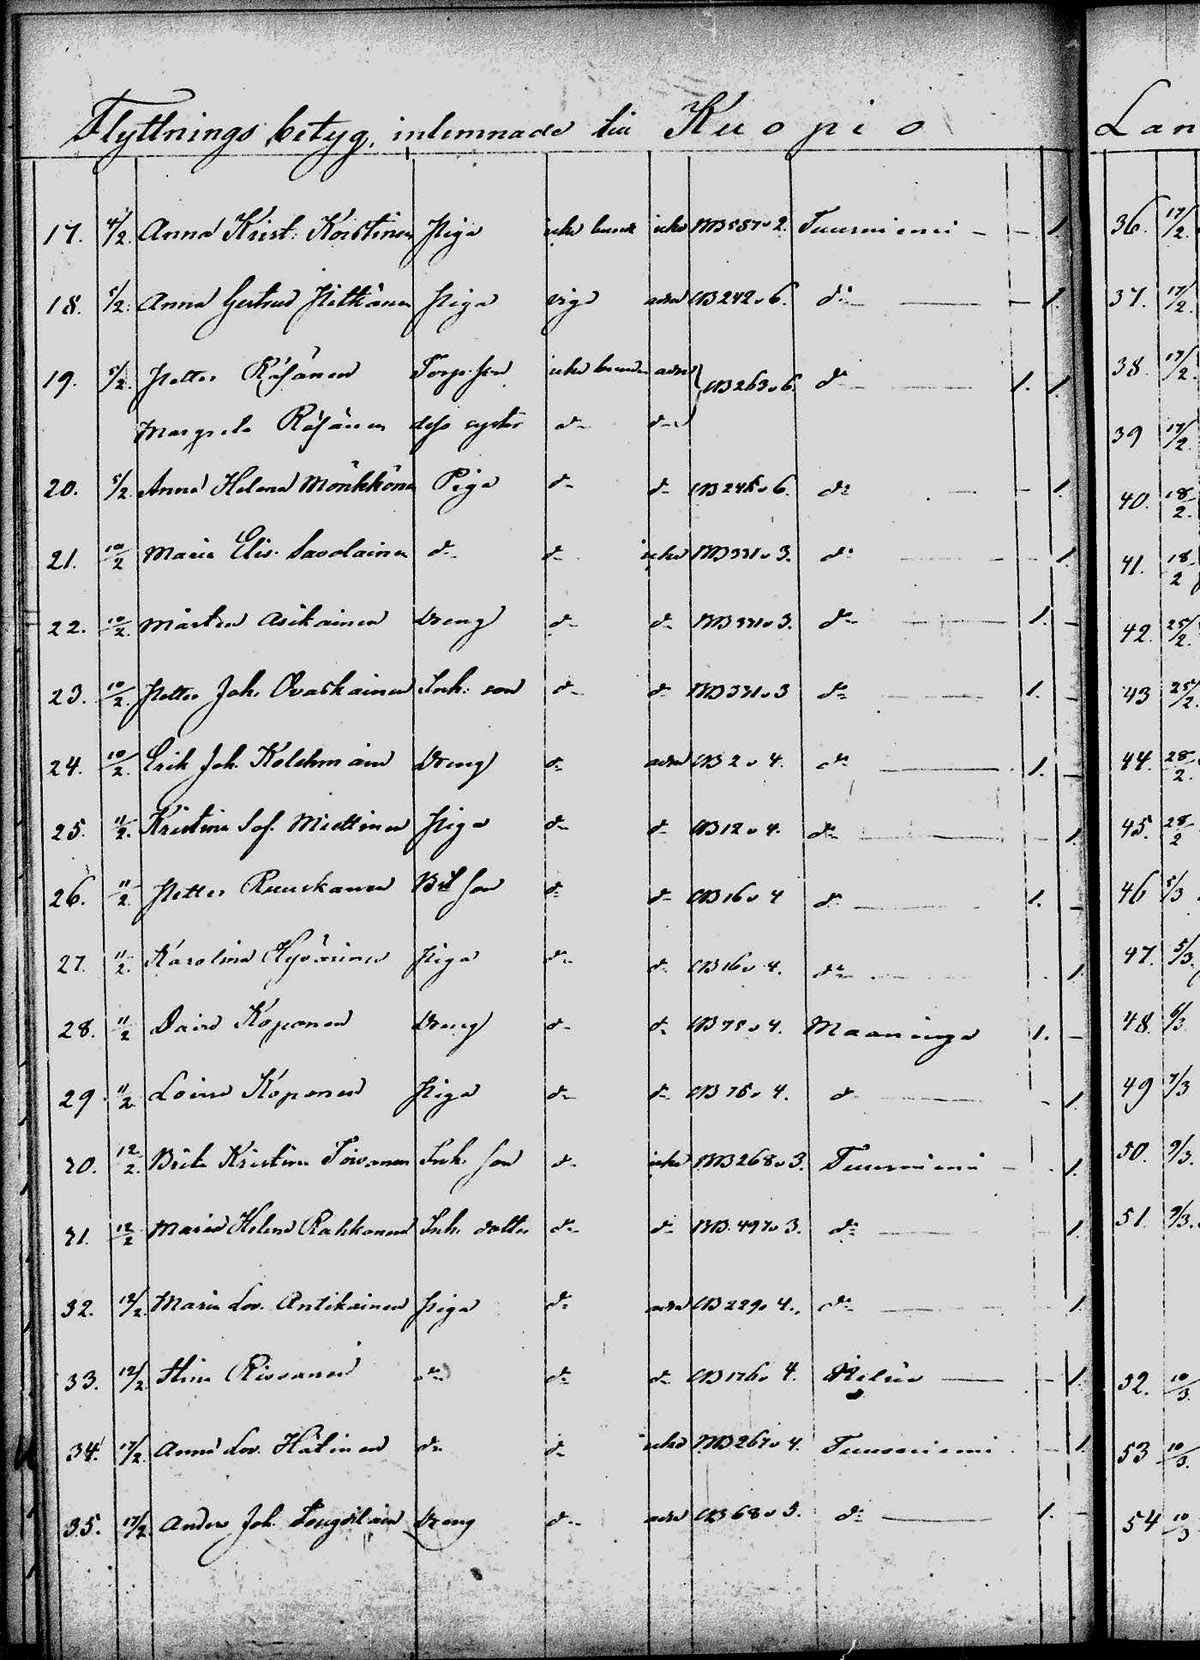 Flyttnings betyg, inlemnade till Kuopio
17. 4/2. Anna Krist. Korstinen Piga icke bunde icke MB557 v 2. Tuusniemi - - 1.
18. 5/2. Anna Gertrud Pitkänen Piga vigd adm CB 242 v 6. do - 1.
19. 5/2. Petter Räsänen Torp. son icke bunden adm CB 263 v 6. do 1. 1.
Margreta Räsänen dess syster do do
20. 5/2 Anna Helena Mönkkönen Piga do do CB 245 v 6. do - 1.
21. 10/2 Maria Elis. Savolainen do do icke MB 331 v 3. do 1.
22. 10/2. Mårten Asikainen Dreng do do MB 331 v 3. do 1. -
23. 10/2. Petter Joh. Ovaskainen Inh. son do do MB 331 v 3 do 1. -
24. 10/2. Erik Joh. Kolehmain Dreng do adm CB 2 v 4. do 1. -
25. 11/2. Kristina Sof. Miettinen Piga do do CB 12 v 4. do 1.
26. 11/2 Petter Ruuskanen son do do CB 16 v 4 do 1. -
27. 11/2. Karolina Hyvärinen Piga do do CB 16 v 4. do 1.
28. 11/2 David Koponen Dreng do do CB 75 v 4. Maaninga 1. -
29. 11/2 Lovisa Koponen Piga do do CB 75 v 4. do - 1.
30. 12/2. Brita Kristina Toivanen Inh. son do icke MB 268 v 3. Tuusniemi - 1.
31. 12/2 Maria Helena Rahkonen Inh. dotter do do MB. 497 v 3. do 1.
32. 12/2. Maria Lov. Antikainen Piga do adm CB 229 v 4. do 1.
33. 12/2 Stina Rissanen do do do CB 176 v 4. - 1.
34. 17/2. Anna Lov. Hätinen do do icke MB 267 v 4. Tuusniemi - 1.
35. 17/2 Anders Joh. Dreng do adm CB 68 v 5. do 1. -
Lan
36. 17/2.
37. 17/2.
38. 17/2.
39 17/2.
40. 18/2.
41. 18/2
42. 25/2.
43 25/2.
44. 28/2.
45. 28/2
46 5/3
47. 5/3.
48. 6/3
49 7/3
50. 9/3.
51. 9/3.
52. 10/3.
53 10/3.
54 10/3